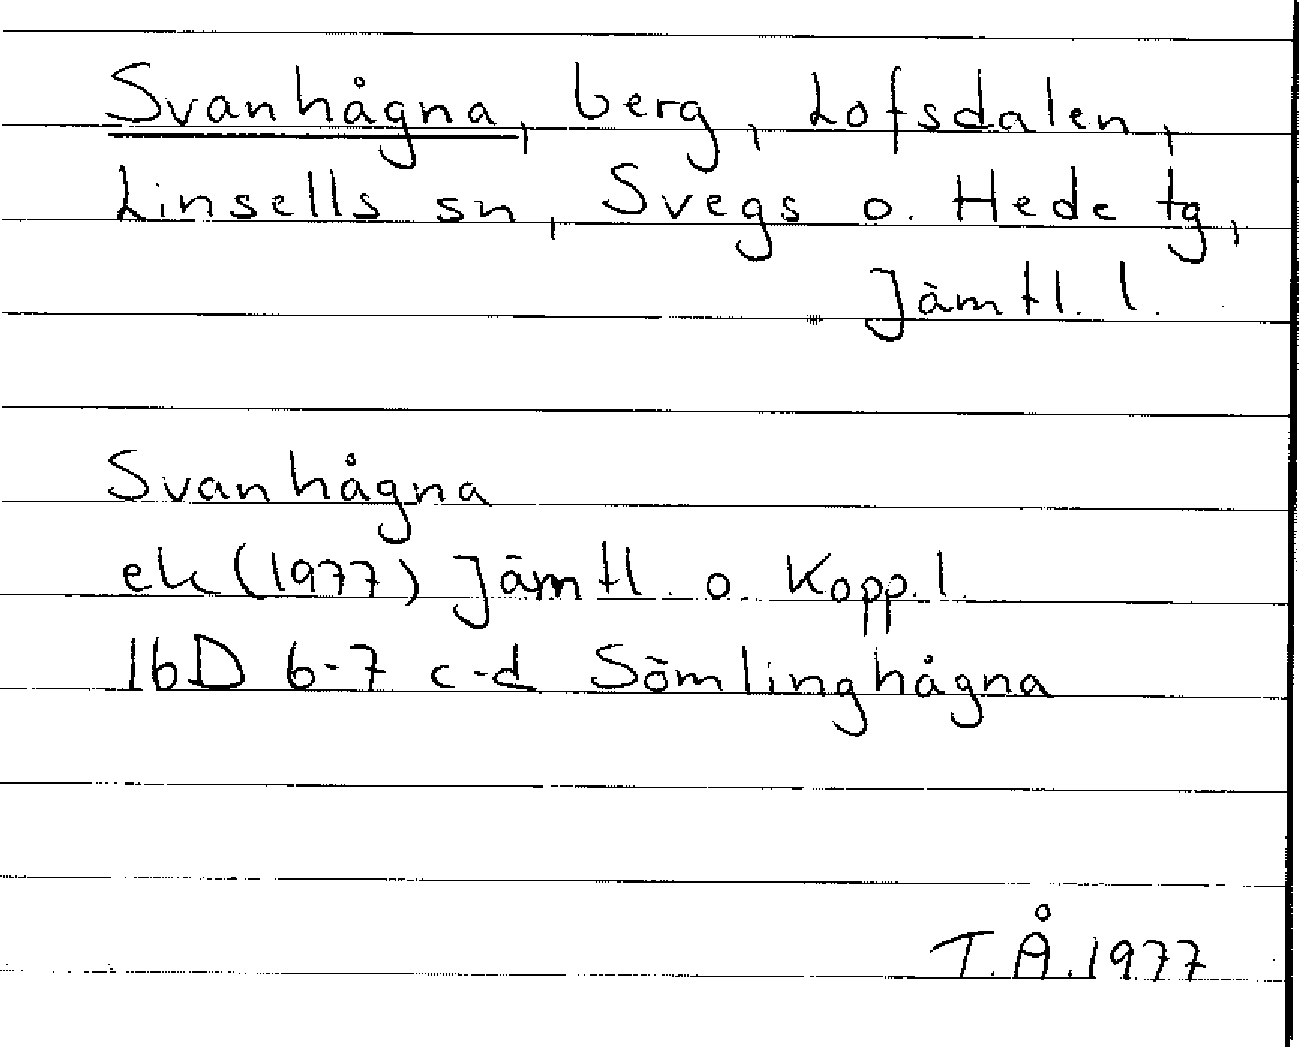 Svanhågna, berg, Lofsdalen,
Linsells sn, Svegs o. Hede tg,
Jämtl. l.
Svanhågna
ek (1977) Jämtl. o. Kopp. l.
16D 6-7 c-d Sömlinghågna
T.Å. 1977